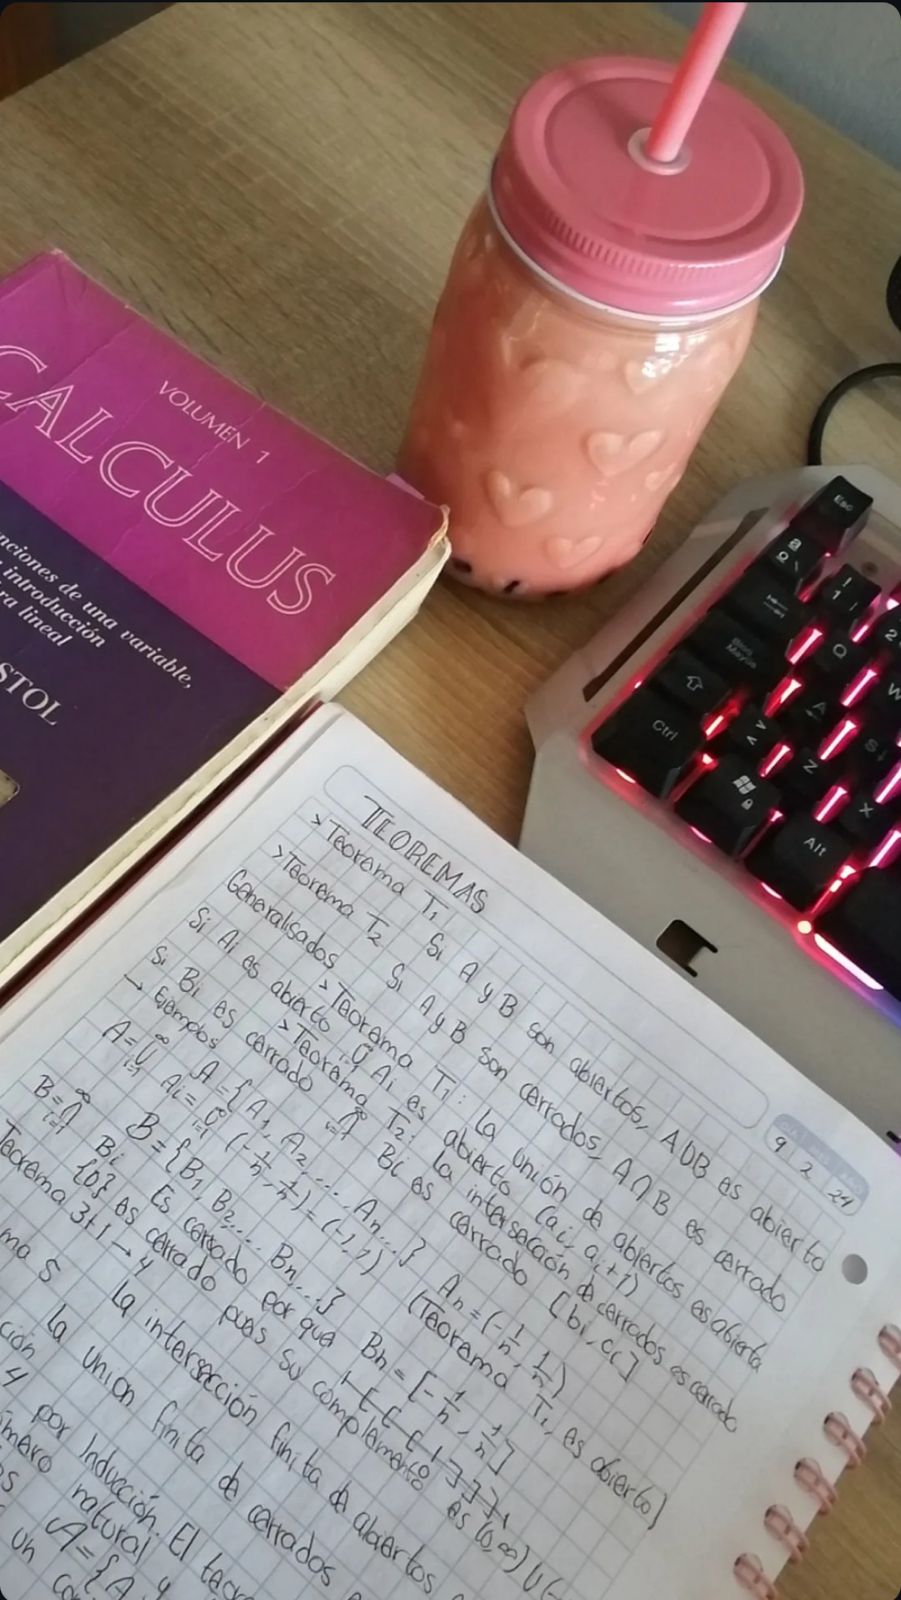 CALCULUS
VOLUMEN 1
nciones de una variable,
introducción
ra lineal
STOL
Esc
Bloq Mayús
Ctrl
Alt
Q
A
S
Z
X
TEOREMAS
9 2 24
> Teorema T₁ Si A y B son abiertos, AUB es abierto
> Teorema T₂ Si A y B son cerrados, A∩B es cerrado
Generalisados > Teorema T₁: La unión de abiertos es abierta
Si Ai es abierto ∞⋃i=1 Ai es abierto (ai, ai+1)
> Teorema T₂: la intersección de cerrados es cerrado
Si Bi es cerrado ∞⋂i=1 Bi es cerrado [bi, ci]
→ Ejemplos A = {A₁, A₂, ... An...} An = (-1/n, 1/n)
A = ∞⋃i=1 Ai = ∞⋃i=1 (-1/n, 1/n) = (-1, 1) (Teorema T₁, es abierto]
B = {B₁, B₂, ... Bn, ...} Bn = [-1/n, 1/n]
B = ∞⋂i=1 Bi Es cerrado por que
{0} es cerrado pues su complemento es (0, ∞) U (-
Teorema 3+1 → 4 La intersección finita de abiertos
ma 5 La unión finita de cerrados
ción por Inducción. El teor
4 número natural y
A = {A
un con